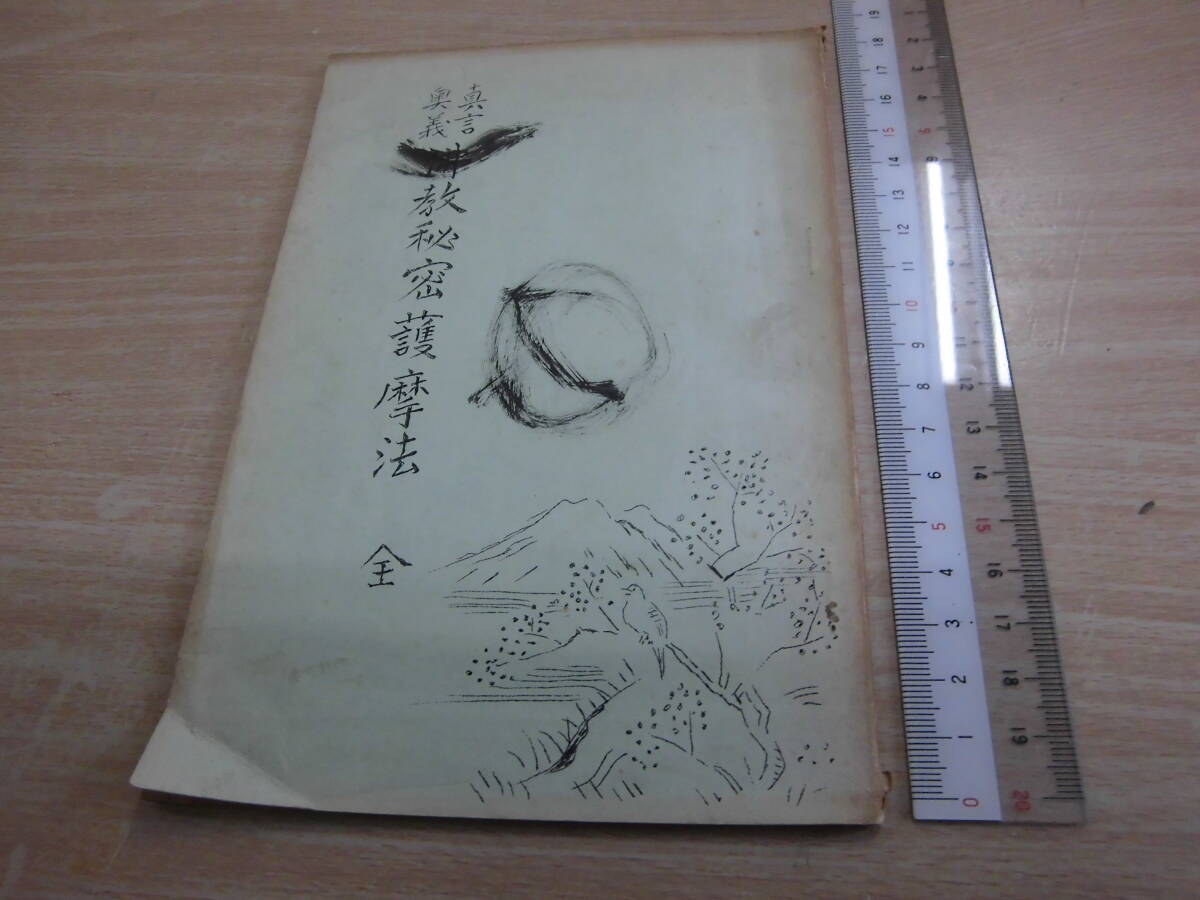 真言
奥義
教秘密護摩法
全
19
18
17
16
15
14
13
12
11
10
9
8
7
6
5
4
3
2
1
0
1
2
3
4
5
6
12
13
14
15
16
17
18
19
20